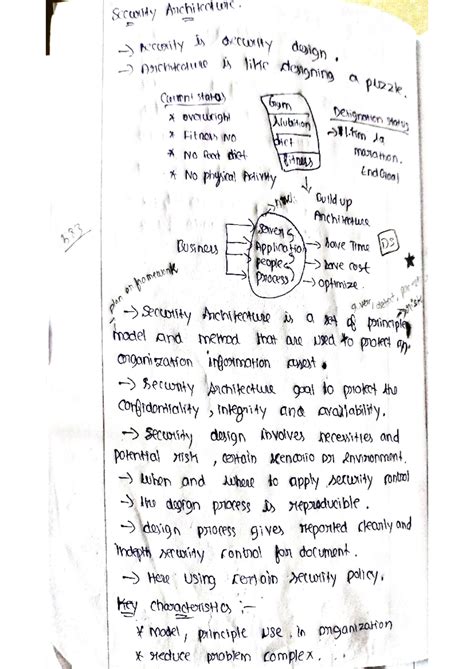 Security Architecture.
→ Security is security design.
→ Architecture is like designing a puzzle.
Current status
* overweight
* Fitness No
* No Food diet
* No physical Activity
Gym
Nutrition
diet
Fitness
Designation status
→ 42km
marathon.
End Goal
Build up
Architecture
Business
Servers
Application
people
Process
→ save Time
→ save cost
→ optimize
DS
plan or framework
→ Security Architecture is a set of principle
model and method that are used to protect an
organization information asset.
→ Security Architecture goal to protect the
Confidentiality, integrity and availability.
→ Security design involves necessities and
potential risk, certain scenario or Environment.
→ When and where to apply security control
→ the design process is reproducible.
→ design process gives reported clearly and
indepth security control for document.
→ Here using certain security policy.
Key characteristics :-
* model, principle use in organization
* reduce problem complex...